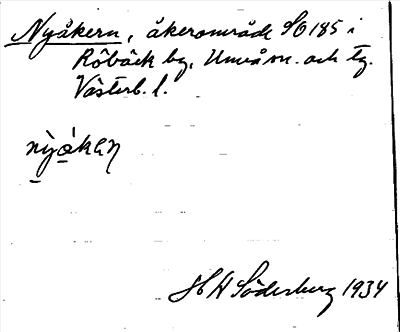 Nyåkern, åkerområde SO 185 i
Röbäck by, Umeå sn. och tg.
Västerb. l.
nẏåkəɳ
H Söderberg 1934